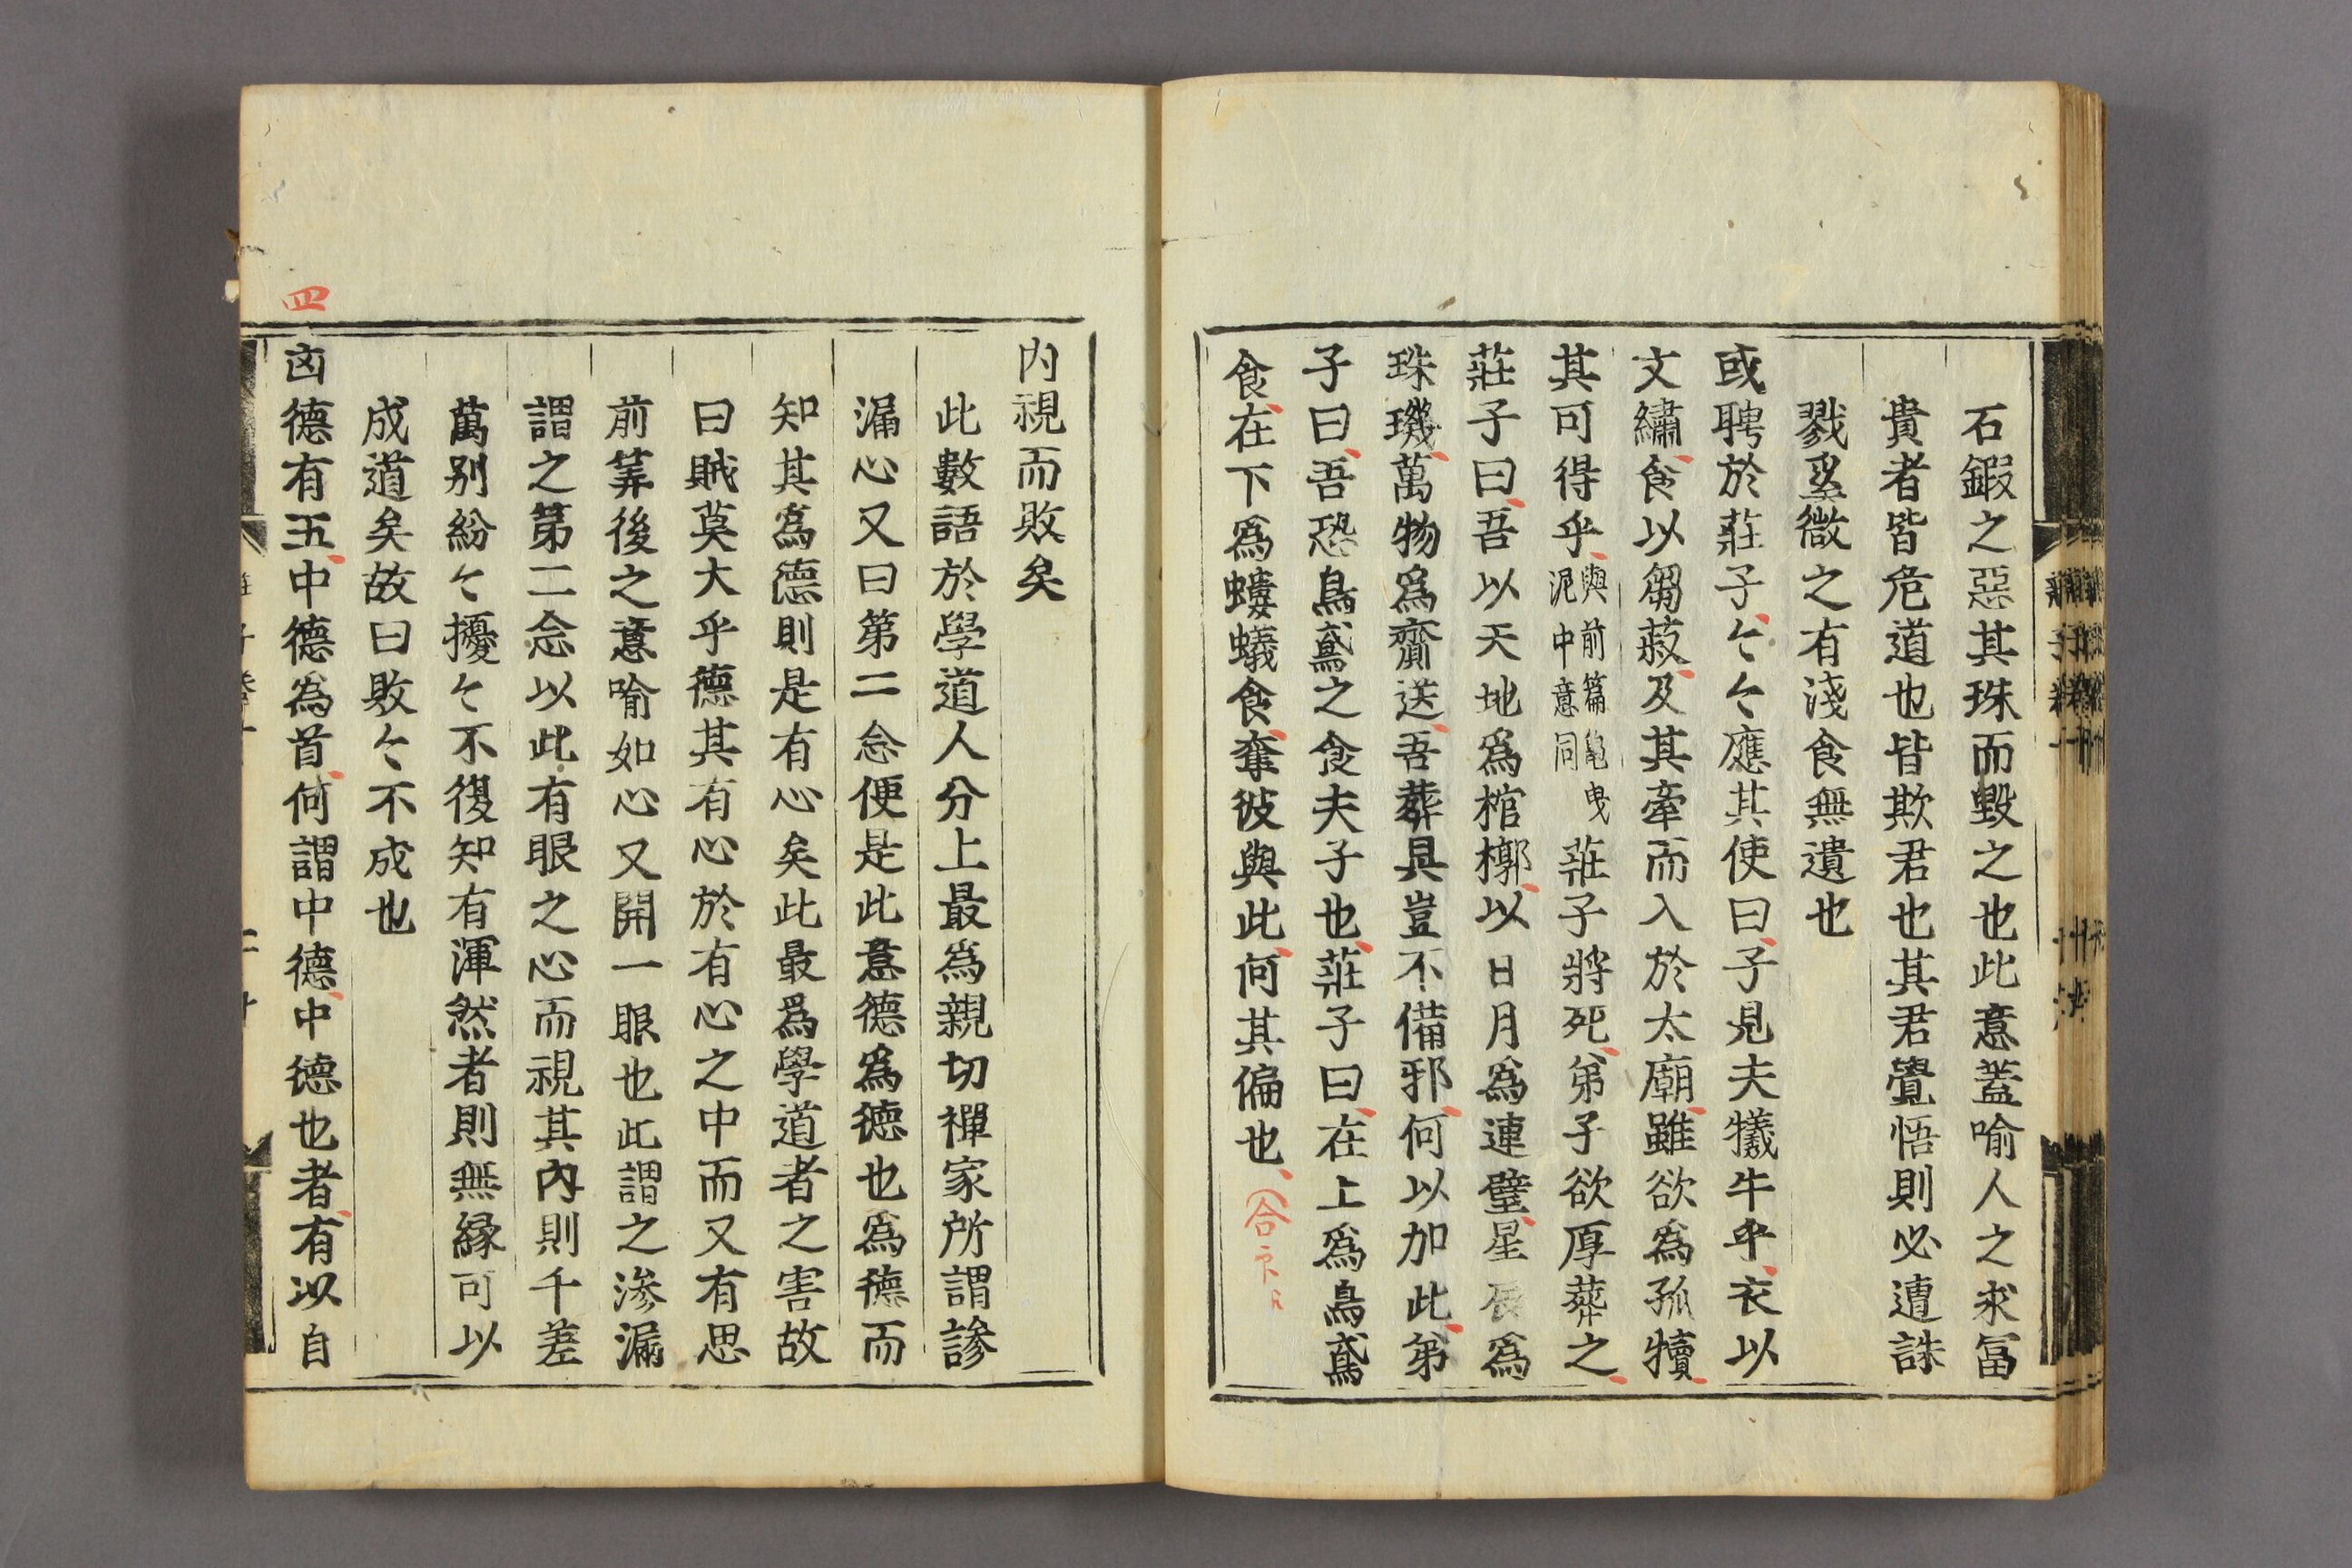 石鍜之惡其珠而毀之也此意蓋喻人之求冨
貴者皆危道也皆欺君也其君覺悟則必遭誅
戮奚微之有淺食無遺也
或聘於莊子〻〻應其使曰子見夫犧牛乎衣以
文繡食以芻菽及其牽而入於太廟雖欲爲孤犢
其可得乎
與前篇龜曳
泥中意同
莊子將死弟子欲厚葬之
莊子曰吾以天地爲棺槨以日月爲連璧星辰爲
珠璣萬物爲齎送吾葬具豈不備邪何以加此弟
子曰吾恐烏鳶之食夫子也莊子曰在上爲烏鳶
食在下爲螻蟻食奪彼與此何其偏也
內視而敗矣
此數語於學道人分上最爲親切禪家所謂滲
漏心又曰第二念便是此意德爲德也爲德而
知其爲德則是有心矣此最爲學道者之害故
曰賊莫大乎德其有心於有心之中而又有思
前筭後之意喻如心又開一眼也此謂之滲漏
謂之第二念以此有眼之心而視其內則千差
萬别紛〻擾〻不復知有渾然者則無緣可以
成道矣故曰敗〻不成也
四
凶德有五中德爲首何謂中德中德也者有以自